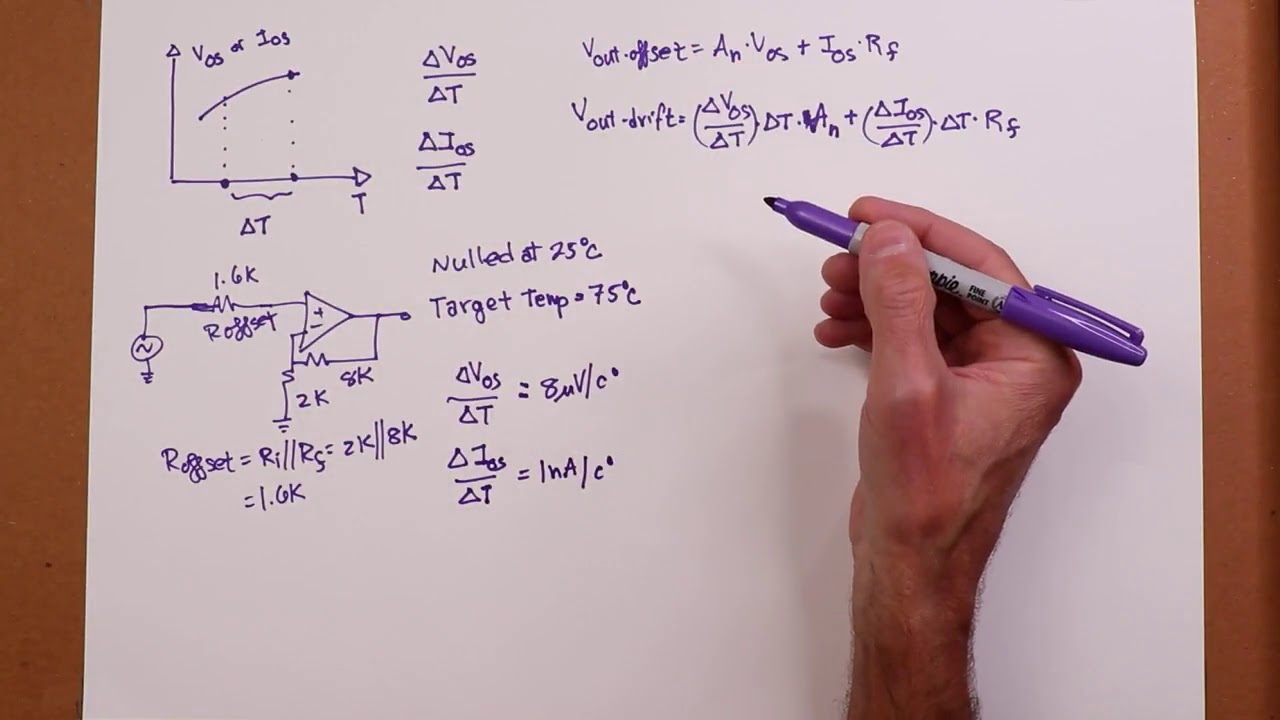 V_os or I_os
ΔV_os/ΔT
ΔI_os/ΔT
T
ΔT
V_out-offset = A_n·V_os + I_os·R_f
V_out-drift = (ΔV_os/ΔT)·ΔT·A_n + (ΔI_os/ΔT)·ΔT·R_f
1.6K
Roffset
+
−
8K
2K
Roffset = Ri||Rf = 2K||8K
= 1.6K
Nulled at 25°C
Target Temp = 75°C
ΔV_os/ΔT = 8µV/C°
ΔI_os/ΔT = 1nA/C°
FINE
POINT